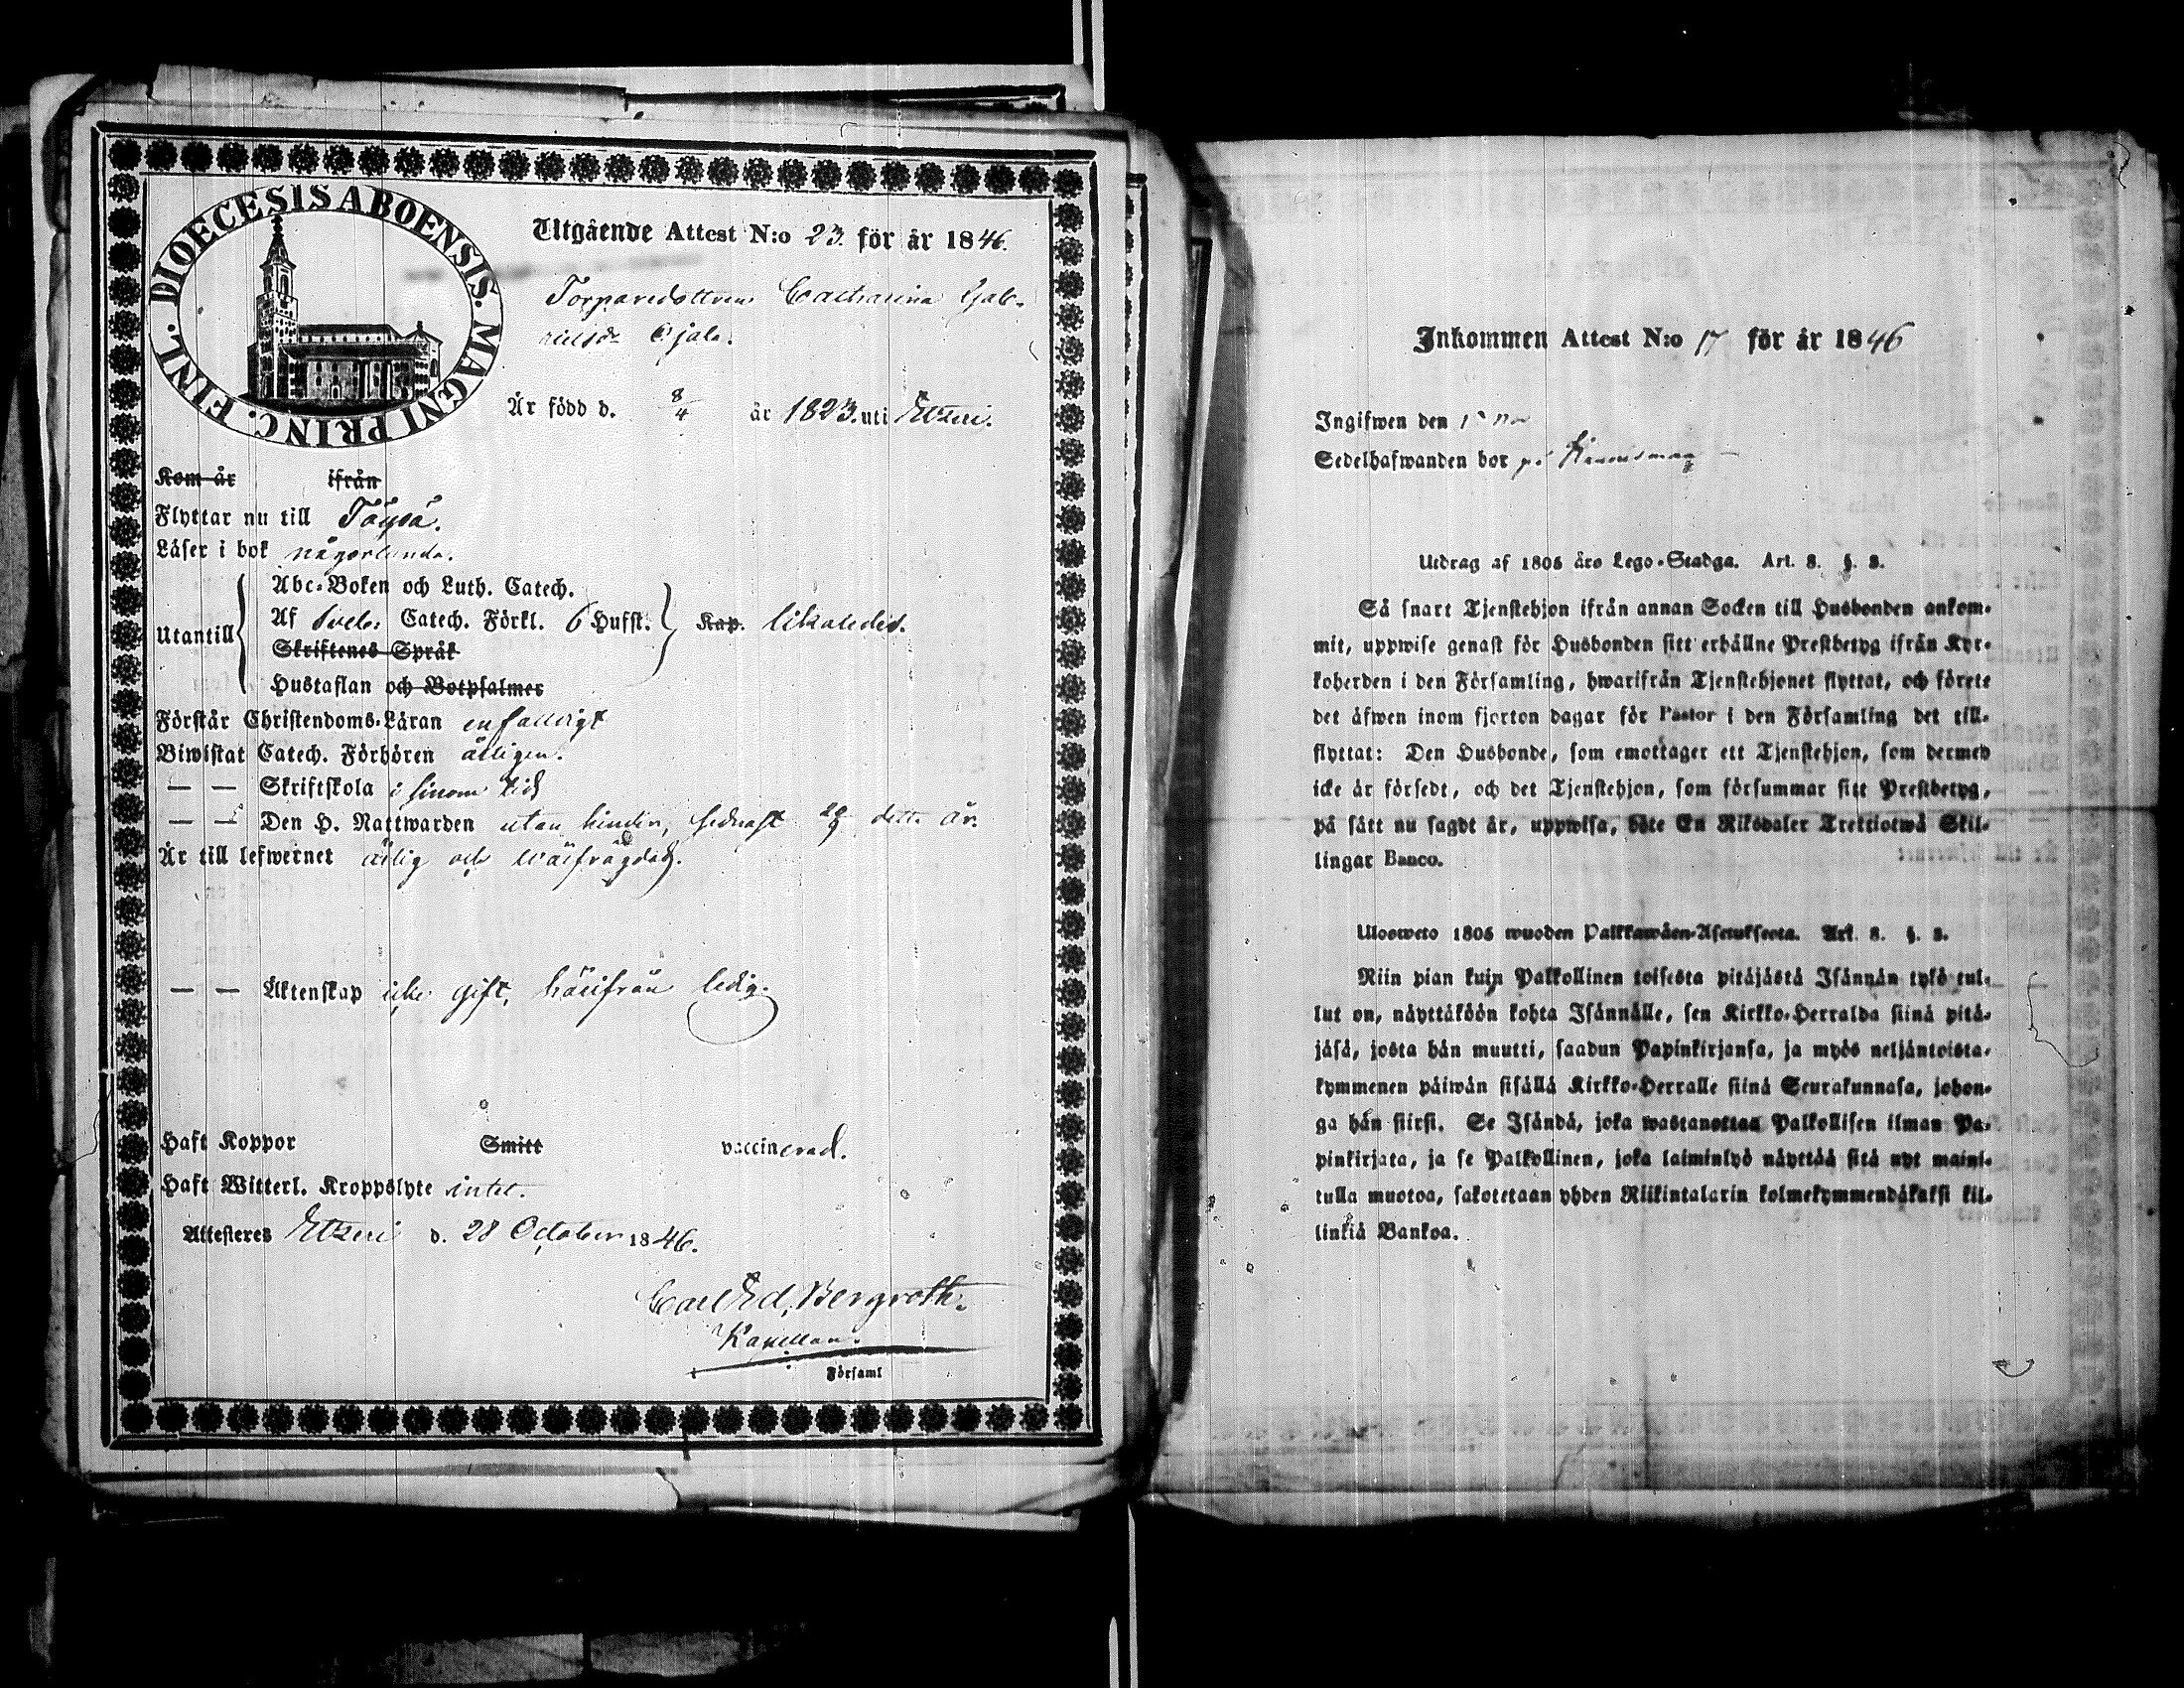 DIOECESIS ABOENSIS. MAGNI PRINC. FINL.
Utgående Attest N:o 23. för år 1846.
Torparedottren Catharina Gab-
rielsdr Ojala.
Är född d. 8/4 år 1823. uti Etzeri.
Kom år ifrån
Flyttar nu till Töysä.
Läser i bok någorlunda.
Abc-Boken och Luth. Catech.
Utantill Af Sveb. Catech. Förkl. 6 Hufst. Kap. likaledes.
Skriftenes Språk
Hustaflan och Botpsalmer
Förstår Christendoms-Läran enfaldigt
Biwistat Catech. Förhören årligen.
— — Skriftskola i sinom tid
— — Den H. Nattwarden utan hinder, sednast detta år.
Är till lefwernet ärlig och wälfrägdad.
— — Äktenskap icke gift, härifrån ledig.
Haft Koppor Smitt vaccinerad.
Haft Witterl. Kroppslyte intet.
Attesteres Etzeri d. 28 October 1846.
Carl Ed. Bergroth.
Kapellan.
Församl
Inkommen Attest N:o 17 för år 1846
Ingifwen den
Sedelhafwanden bor på
Utdrag af 1805 års Lego-Stadga. Art. 8. §. 8.
Så snart Tjenstehjon ifrån annan Socken till Husbonden ankom-
mit, uppwise genast för Husbonden sitt erhållne Prestbetyg ifrån Kyr-
koherden i den Församling, hwarifrån Tjenstehjonet flyttat, och förete
det äfwen inom fjorton dagar för Pastor i den Församling det till-
flyttat: Den Husbonde, som emottager ett Tjenstehjon, som dermed
icke är försedt, och det Tjenstehjon, som försummar sitt Prestbetyg,
på sätt nu sagdt är, uppwisa, böte En Riksdaler Trettiotwå Skil-
lingar Banco.
Ulosweto 1805 wuoden Palkkawäen-Asetuksesta. Art. 8. §. 8.
Niin pian kuin Palkollinen toisesta pitäjästä Isännän tykö tul-
lut on, näyttäköön kohta Isännälle, sen Kirkko-Herralda siinä pitä-
jäsä, josta hän muutti, saadun Papinkirjansa, ja myös neljäntoista-
kymmenen päiwän sisällä Kirkko-Herralle siinä Seurakunnasa, johon-
ga hän siirsi. Se Isändä, joka wastanottaa Palkollisen ilman Pa-
pinkirjata, ja se Palkollinen, joka laiminlyö näyttää sitä nyt maini-
tulla muotoa, sakotetaan yhden Riikintalarin kolmekymmendäkaksi kil-
linkiä Bankoa.